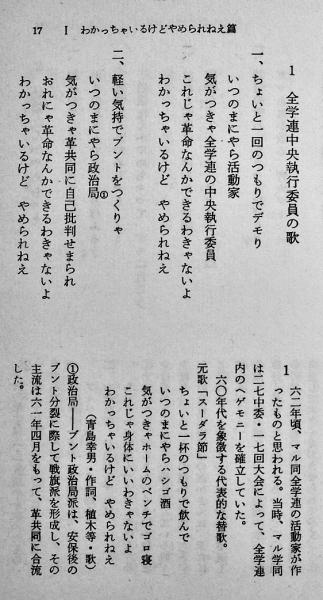 17　Ⅰ　わかっちゃいるけどやめられねえ篇
1　全学連中央執行委員の歌
一、ちょいと一回のつもりでデモり
いつのまにやら活動家
気がつきゃ全学連の中央執行委員
これじゃ革命なんかできるわきゃないよ
わかっちゃいるけど　やめられねえ
二、軽い気持でブントをつくりゃ
いつのまにやら政治局①
気がつきゃ革共同に自己批判せまられ
おれにゃ革命なんかできるわきゃないよ
わかっちゃいるけど　やめられねえ
1　六二年頃、マル同全学連の活動家が作
ったものと思われる。当時、マル学同
は二七中委・一七回大会によって、全学連
内のヘゲモニーを確立していた。
六〇年代を象徴する代表的な替歌。
元歌「スーダラ節」
ちょいと一杯のつもりで飲んで
いつのまにやらハシゴ酒
気がつきゃホームのベンチでゴロ寝
これじゃ身体にいいわきゃないよ
わかっちゃいるけど　やめられねえ
（青島幸男・作詞、植木等・歌）
①政治局――ブント政治局派は、安保後の
ブント分裂に際して戦旗派を形成し、その
主流は六一年四月をもって、革共同に合流
した。